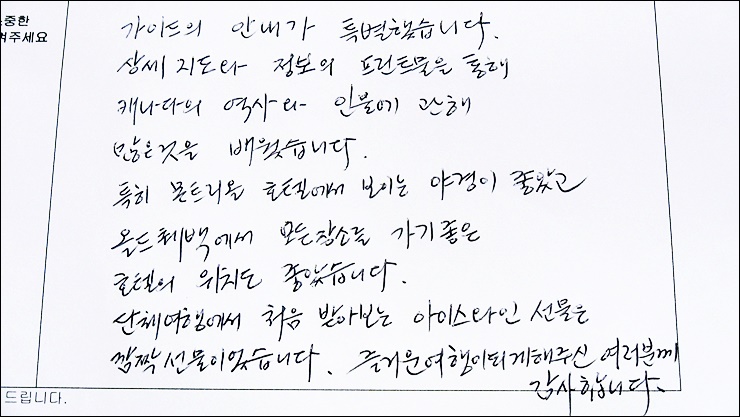 중한
여주세요
가이드의 안내가 특별했습니다.
상세 지도와 정보의 프린트물을 통해
캐나다의 역사와 인물에 관해
많은것을 배웠습니다.
특히 몬트리올 호텔에서 보이는 야경이 좋았고
올드퀘백에서 모든장소로 가기좋은
호텔의 위치도 좋았습니다.
단체여행에서 처음 받아보는 아이스와인 선물은
깜짝선물이었습니다. 즐거운여행이되게해주신 여러분께
감사합니다.
드립니다.